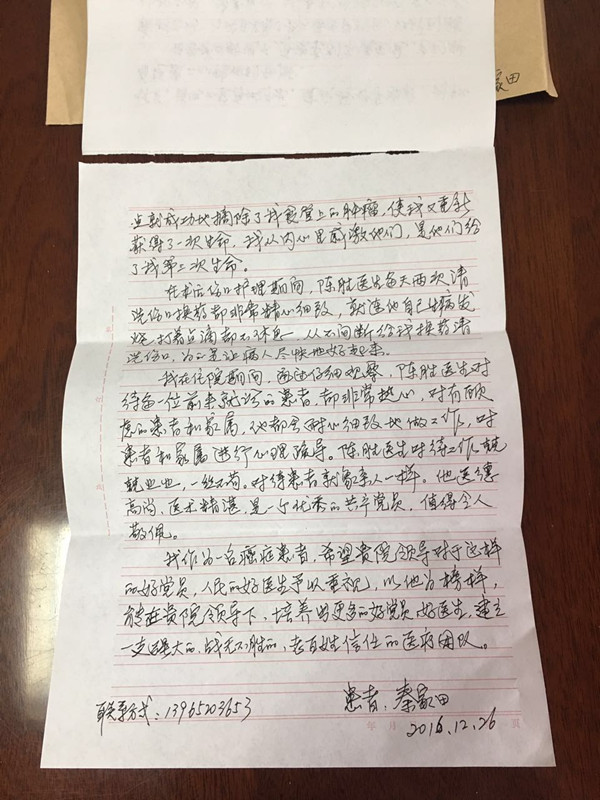 家田
点到成功地摘除了我食管上的肿瘤,使我又重新
获得了二次生命,我从内心里感激他们,是他们给
了我第二次生命。
在术后伤口护理期间,陈胜医生每天两次清
洗伤口换药都非常精心细致,就连他自己生病发
烧,打着点滴都不休息,从不间断给我换药清
洗伤口,为的是让病人尽快地好起来。
我在住院期间,通过仔细观察,陈胜医生对
待每一位前来就诊的患者都非常热心,对有顾
虑的患者和家属,他都会耐心细致地做工作,对
患者和家属进行心理疏导。陈胜医生对待工作兢兢
业业,一丝不苟。对待患者就象亲人一样。他医德
高尚,医术精湛,是一个优秀的共产党员,值得令人
敬佩。
我作为一名癌症患者,希望贵院领导对于这样
的好党员,人民的好医生予以重视,以他为榜样,
能在贵院领导下,培养出更多的好党员好医生,建立
一支强大的,战无不胜的,老百姓信任的医疗团队。
患者:秦家田
联系方式:13965203653
年 月 页
2016.12.26